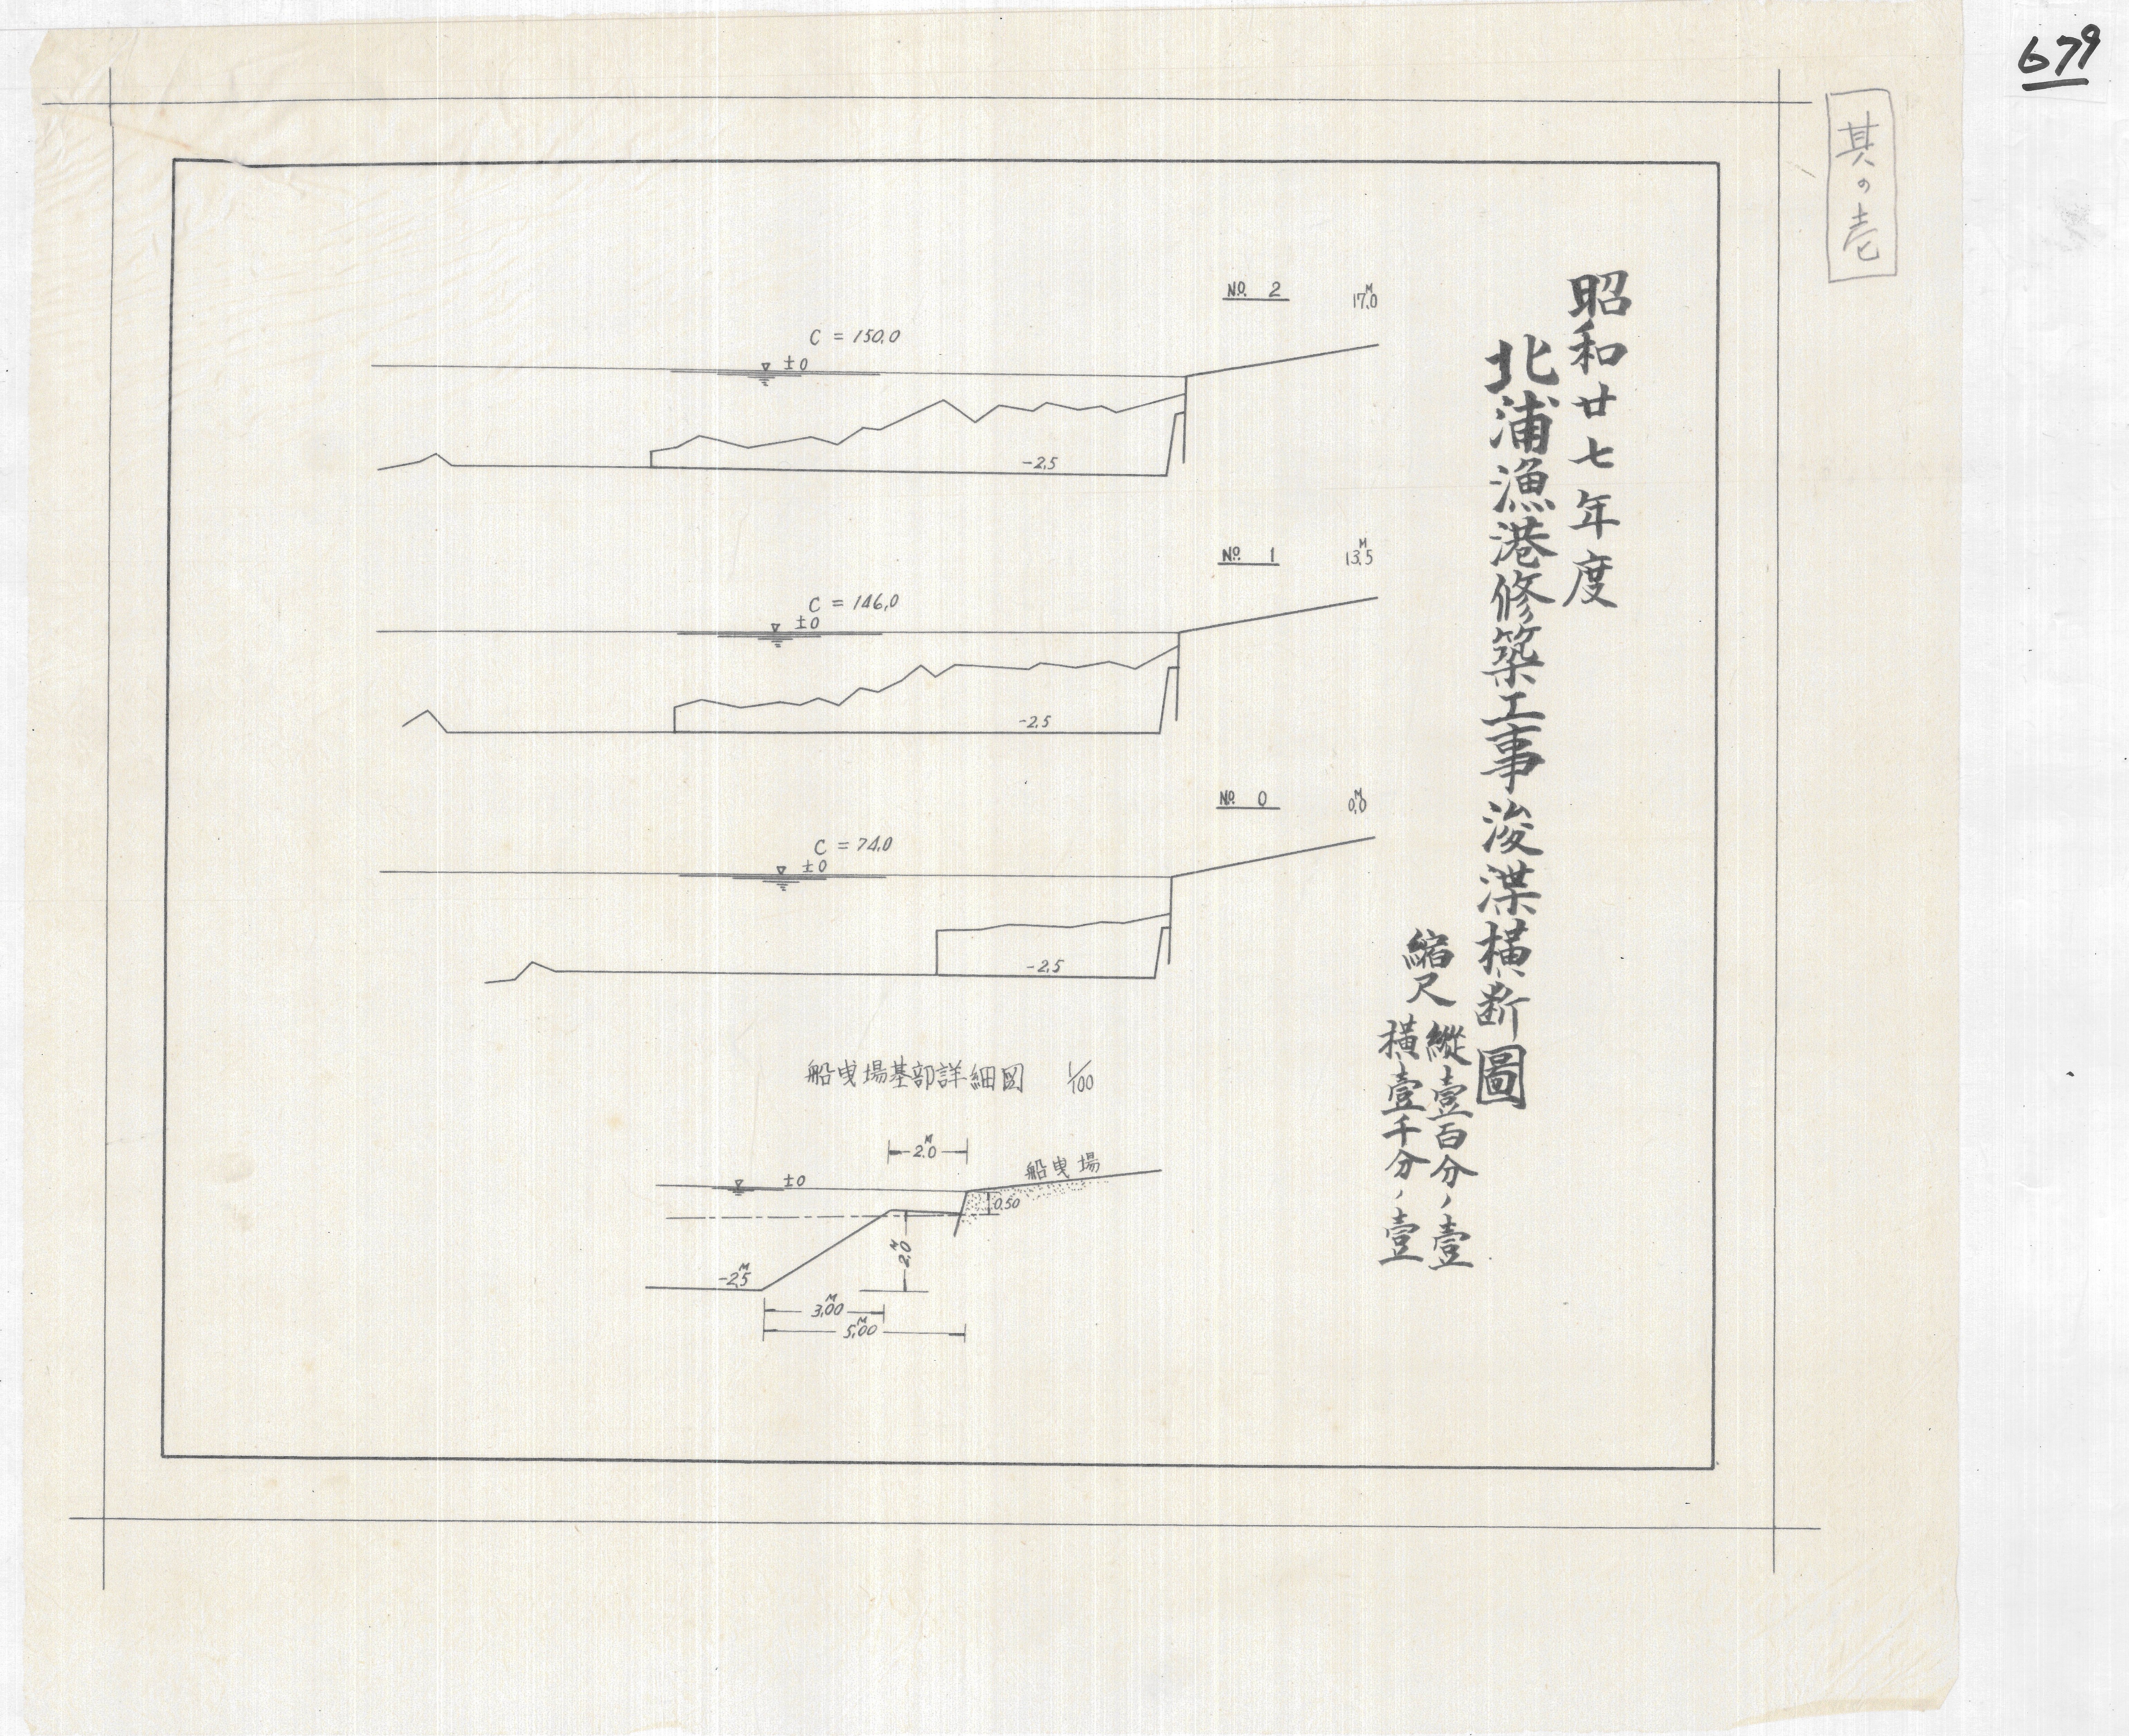 679
其の壱
昭和廿七年度
北浦漁港修築工事浚渫横断圖
縮尺
縦壹百分ノ壹
横壹千分ノ壹
No. 2
17.0M
C = 150.0
±0
-2.5
No. 1
13.5M
C = 146.0
±0
-2.5
No. 0
0.0M
C = 74.0
±0
-2.5
船曳場基部詳細図 1/100
2.0M
船曳場
±0
0.50
2.0M
-2.5M
3.00M
5.00M